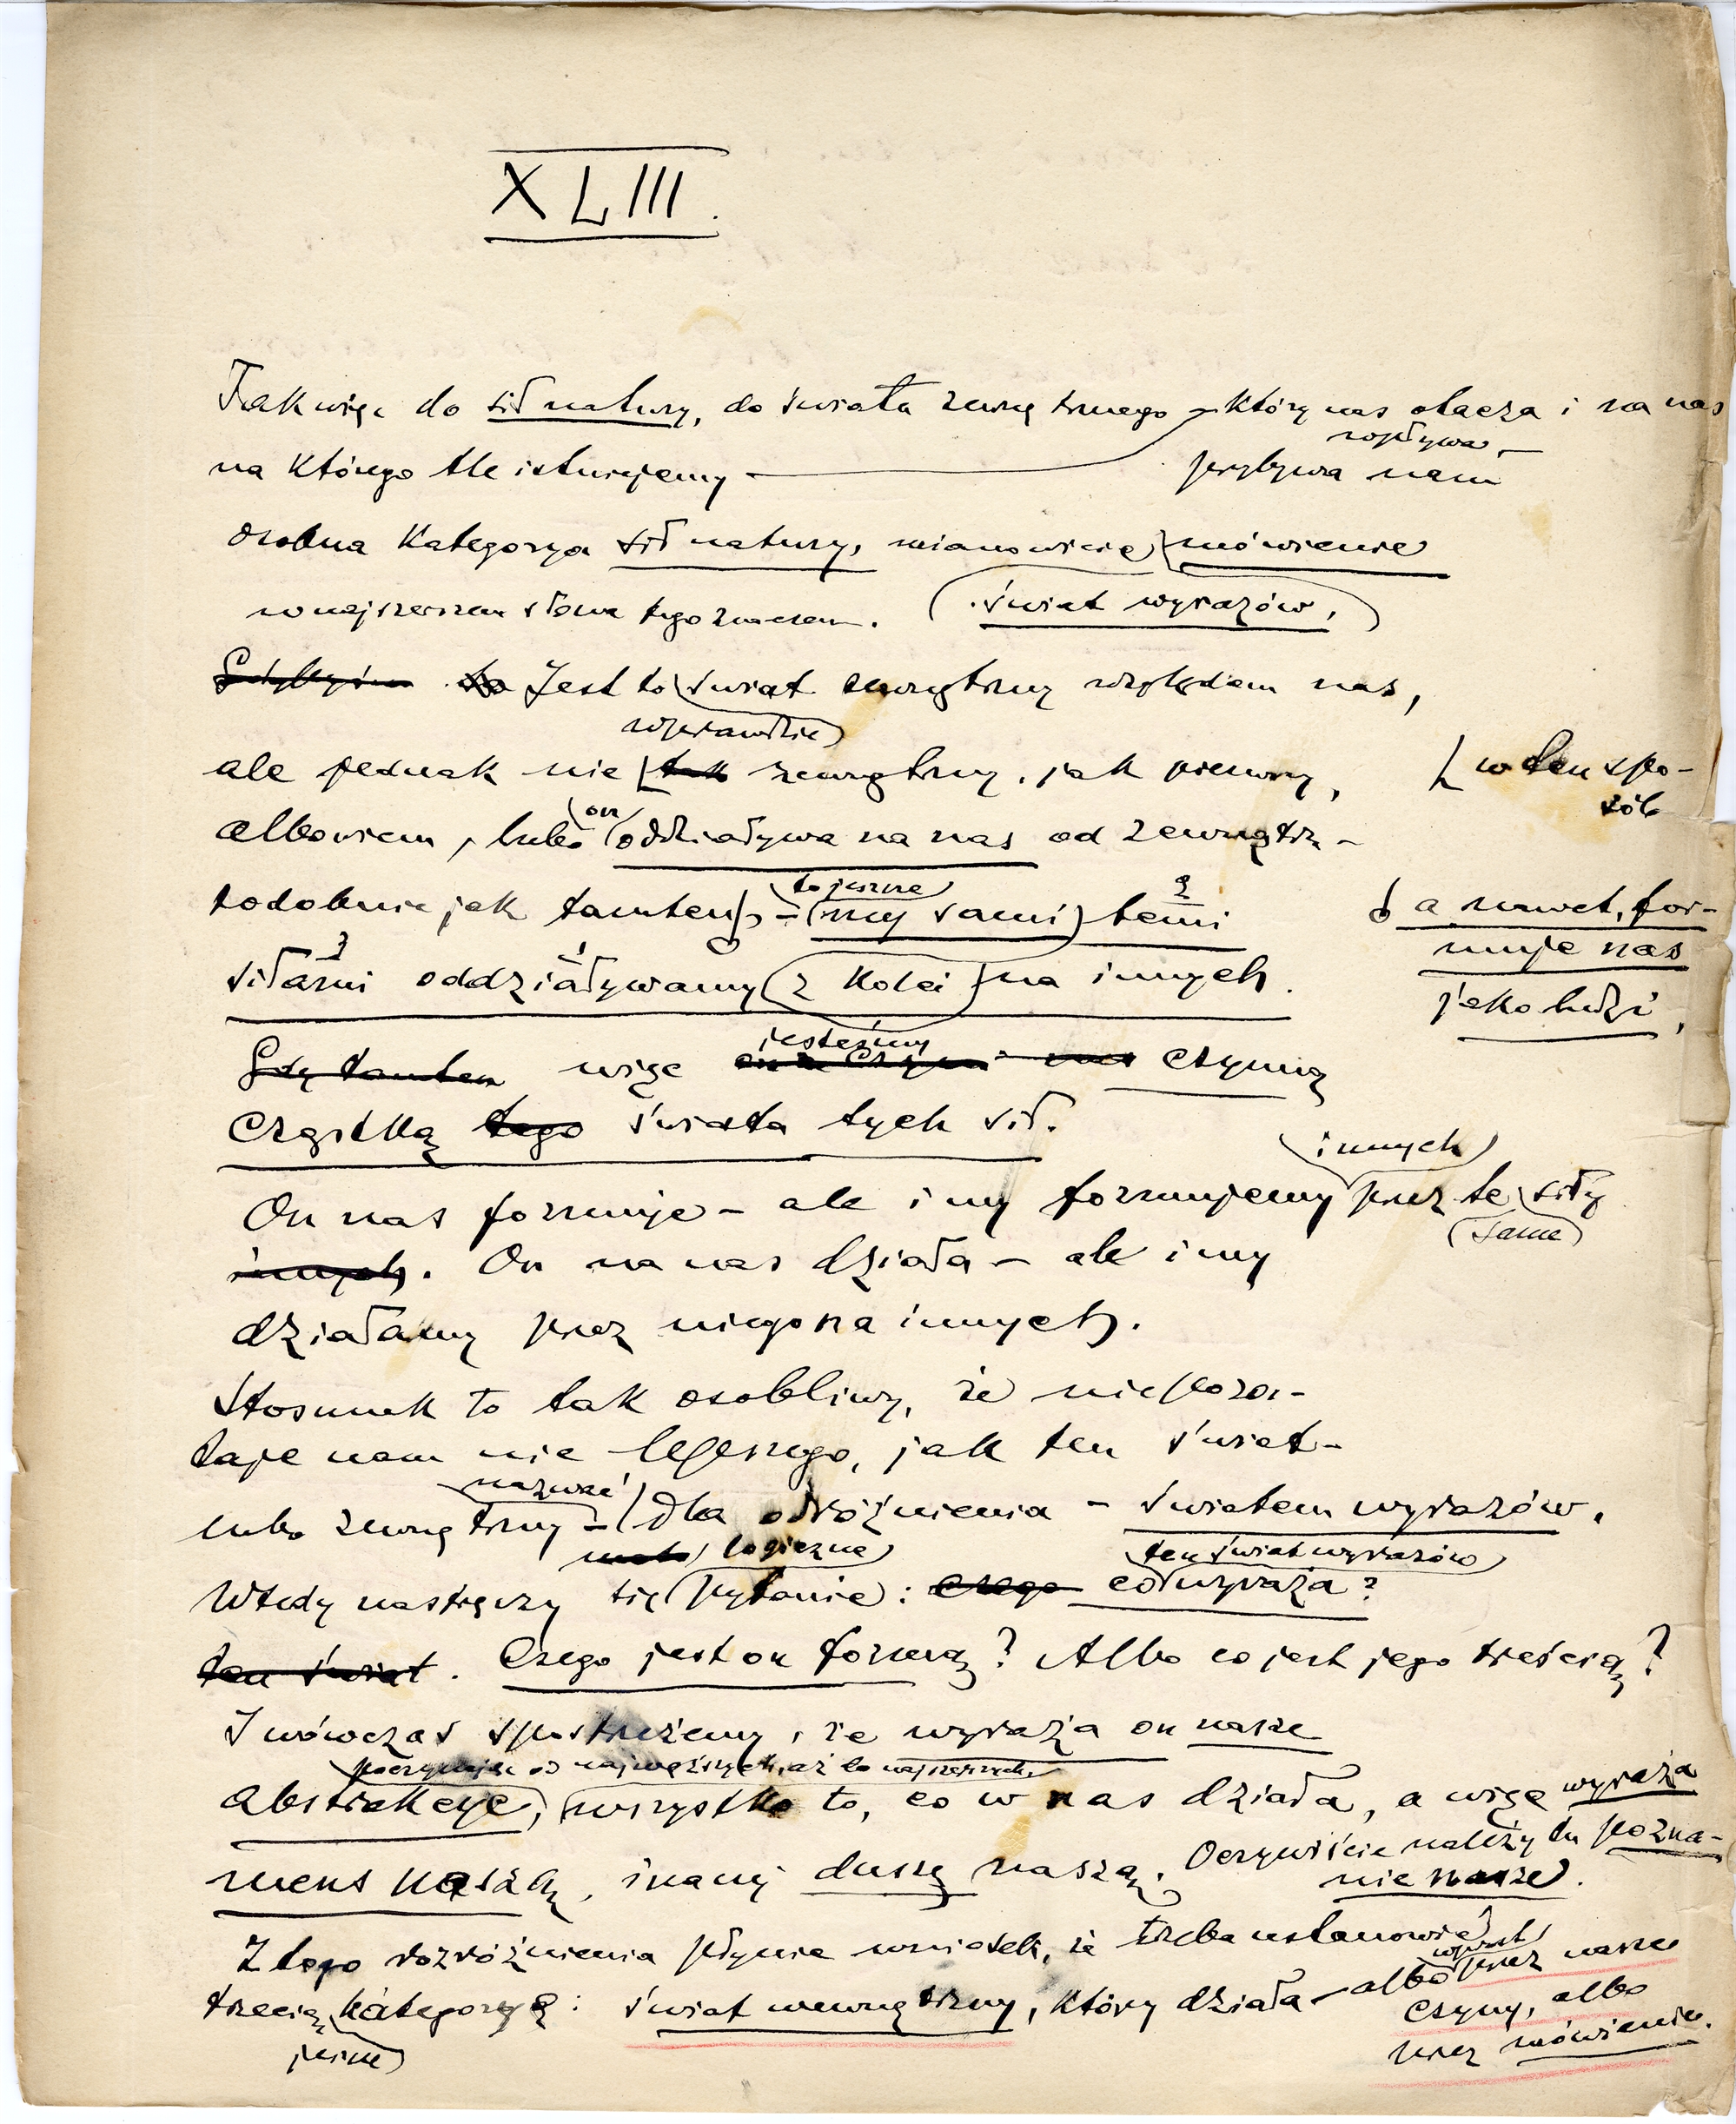 XLIII.
Tak więc do sił natury, do świata zewnętrznego – który nas otacza i na nas
wpływa, –
na którego tle istniejemy – przybywa nam
osobna kategorya sił natury, mianowicie mówienie
w najszerszem słowa tego znaczen.
świat wyrazów,
Gdybyśmy to Jest to świat zewnętrzny względem nas,
wprawdzie
ale jednak nie tak zewnętrzny, jak pierwszy,
w ten spo-
sób
on
albowiem, lubo oddziaływa na nas od zewnątrz –
to jeszcze 2
podobnie jak tamten, – my sami temi
a nawet, for-
muje nas
jako ludzi,
3 1
siłami oddziaływamy z kolei na innych.
jesteśmy
Gdy tamten więc czynną
cząstką tego świata tych sił.
innych
On nas formuje – ale i my formujemy przez te siły
same
innych. On na nas działa – ale i my
działamy przez niego na innych.
Stosunek to tak osobliwy, że nie pozos-
taje nam nic lepszego, jak ten świat –
nazwać
lubo zewnętrzny – dla odróżnienia – światem wyrazów.
logiczne ten świat wyrazów
Wtedy nastręczy się pytanie: czego co wyraża?
ten świat. Czego jest on formą? Albo co jest jego treścią?
I wówczas spostrzeżemy, że wyraża on nasze
począwszy od najwęższych, aż do najszerszych,
abstrakcye, wszystko to, co w nas działa, a więc wyraża
mens naszą, inaczej duszę naszą. Oczywiście należy tu pozna-
nie nasze.
Z tego rozróżnienia płynie wniosek, że trzeba ustanowić
trzecią kategoryę: świat wewnętrzny, który działa – albo wprost przez nasze
jeszcze
czyny, albo
przez mówienie.